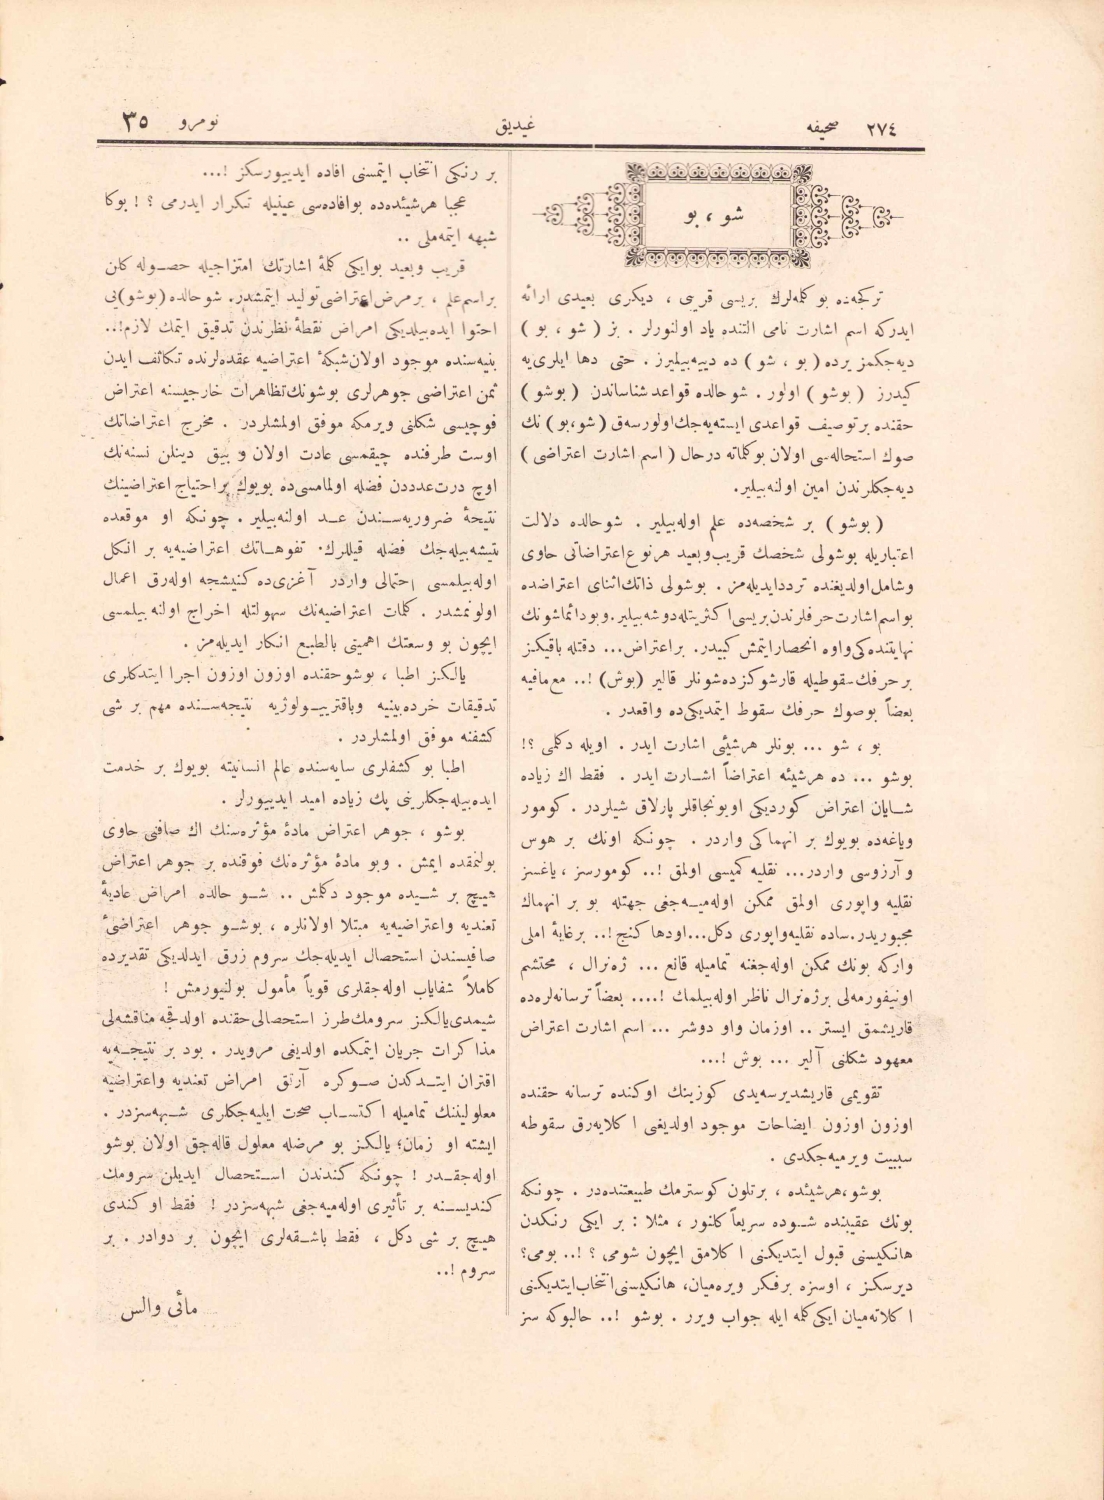 ٢٧٤ صحيفه
غيديق
نومرو ٣٥
شو ، بو
تركجه‌ده بو كلمه‌لرك بريسى قريبى ، ديكرى بعيدى ارائه
ايدركه اسم اشارت نامى التنده ياد اولنورلر . بز ( شو ، بو )
ديه‌جكمز يرده ( بو ، شو ) ده دييه‌بيليرز . حتى دها ايلرى‌يه
كيدرز ( بوشو ) اولور . شو حالده قواعد شناساندن ( بوشو )
حقنده بر توصيف قواعدى ايسته‌يه‌جك اولورسه‌ق ( شو،بو ) نك
صوك استحاله‌سى اولان بوكلماته درحال ( اسم اشارت اعتراضى )
ديه‌جكلرندن امين اولنه‌بيلير.
( بوشو ) بر شخصه‌ده علم اوله‌بيلير . شو حالده دلالت
اعتباريله بوشولى شخصك قريب و بعيد هرنوع اعتراضاتى حاوى
و شامل اولديغنده تردد ايديله‌مز . بوشولى ذاتك اثناى اعتراضده
بو اسم اشارت حرفلرندن بريسى اكثريتله دوشه‌بيلير. و بو دائما شونك
نهايتنده‌كى واوه انحصار ايتمش كبيدر. بر اعتراض... دقتله باقيكز
بر حرفك سقوطيله قارشوكزده شونلر قالير (بوش) !.. مع‌مافيه
بعضاً بوصوك حرفك سقوط ايتمديكى‌ده واقعدر .
بو ، شو ... بونلر هرشيئى اشارت ايدر . اويله دكلمى ؟!
بوشو ... ده هرشيئه اعتراضاً اشارت ايدر . فقط اك زياده
شايان اعتراض كورديكى اويونجاقلر پارلاق شيلردر . كومور
و ياغه‌ده بويوك بر انهماكى واردر . چونكه اونك بر هوس
و آرزوسى واردر... نقليه كميسى اولمق !.. كومورسز ، ياغسز
نقليه واپورى اولمق ممكن اوله‌ميه‌جغى جهتله بو بر انهماك
مجبوريدر. ساده نقليه واپورى دكل... اودها كنج !.. بر غايۀ املى
واركه بونك ممكن اوله‌جغنه تماميله قانع ... ژه‌نرال ، محتشم
اونيفورمه‌لى بر ژه‌نرال ناظر اوله‌بيلمك !.... بعضاً ترسانه‌لره‌ده
قاريشمق ايستر .. اوزمان واو دوشر ... اسم اشارت اعتراض
معهود شكلنى آلير ... بوش !...
تقويمى قاريشديرسه‌يدى كوزينك اوكنده ترسانه حقنده
اوزون اوزون ايضاحات موجود اولديغى اكلايه‌رق سقوطه
سببيت ويرميه‌جكدى .
بوشو،هرشيئده ، برتلون كوسترمك طبيعتنده‌در . چونكه
بونك عقيبنده شوده سريعاً كلنور ، مثلا : بر ايكى رنكدن
هانكيسنى قبول ايتديكنى اكلامق ايچون شومى ؟ !.. بومى؟
ديرسكز ، اوسزه برفكر ويره‌ميان، هانكيسنى انتخاب ايتديكنى
اكلاته‌ميان ايكى كلمه ايله جواب ويرر . بوشو !.. حالبوكه سز
بر رنكى انتخاب ايتمسنى افاده ايدييورسكز !...
عجبا هرشيئده‌ده بو افاده‌سى عينيله تكرار ايدرمى ؟ ! بوكا
شبهه ايتمه‌ملى ..
قريب و بعيد بو ايكى كلمۀ اشارتك امتزاجيله حصوله كلن
بر اسم علم ، بر مرض اعتراضى توليد ايتمشدر. شو حالده (بوشو)يى
احتوا ايده‌بيلديكى امراض نقطۀ نظرندن تدقيق ايتمك لازم!..
بنيه‌سنده موجود اولان شبكۀ اعتراضيه عقده‌لرنده تكاثف ايدن
اعتراضى جوهرلرى بوشونك تظاهرات خارجيسنه اعتراض
فوچيسى شكلنى ويرمكه موفق اولمشلردر . مخرج اعتراضاتك
اوست طرفنده چيقمسى عادت اولان و بيق دينلن نسنه‌نك
اوچ درت عددن فضله اولمامسى‌ده بويوك بر احتياج اعتراضينك
نتيجۀ ضروريه‌سندن عد اولنه‌بيلير . چونكه او موقعده
يتيشه‌بيله‌جك فضله قيللرك تفوهاتك اعتراضيه‌يه بر انكل
اوله‌بيلمسى احتمالى واردر آغزى‌ده كنيشجه اوله‌رق اعمال
اولونمشدر . كلمات اعتراضيه‌نك سهولتله اخراج اولنه‌بيلمسى
ايچون بو وسعتك اهميتى بالطبع انكار ايديله‌مز .
يالكز اطبا ، بوشو حقنده اوزون اوزون اجرا ايتدكلرى
تدقيقات خرده‌بينيه و باقتريولوژيه نتيجه‌سنده مهم بر شى
كشفنه موفق اولمشلردر .
اطبا بو كشفلرى سايه‌سنده عالم انسانيته بويوك بر خدمت
ايده‌بيله‌جكلرينى پك زياده اميد ايدييورلر .
بوشو ، جوهر اعتراض مادۀ مؤثره‌سنك اك صافنى حاوى
بولنمقده ايمش . و بو مادۀ مؤثره‌نك فوقنده بر جوهر اعتراض
هيچ بر شيده موجود دكلمش .. شو حالده امراض عاديۀ
تعنديه و اعتراضيه‌يه مبتلا اولانلره ، بوشو جوهر اعتراضئ
صافيسندن استحصال ايديله‌جك سروم زرق ايدلديكى تقديرده
كاملاً شفاياب اوله‌جقلرى قوياً مأمول بولنيورمش !
شيمدى يالكز سرومك طرز استحصالى حقنده اولدقجه مناقشه‌لى
مذاكرات جريان ايتمكده اولديغى مرويدر . بود بر نتيجه‌يه
اقتران ايتدكدن صوكره آرتق امراض تعنديه و اعتراضيه
معلوليننك تماميله اكتساب صحت ايليه‌جكلرى شبهه‌سزدر .
ايشته او زمان؛ يالكز بو مرضله معلول قاله‌جق اولان بوشو
اوله‌جقدر ! چونكه كندندن استحصال ايديلن سرومك
كنديسنه بر تأثيرى اوله‌ميه‌جغى شبهه‌سزدر ! فقط او كندى
هيچ بر شى دكل ، فقط باشقه‌لرى ايچون بر دوادر . بر
سروم !..
مائى والس